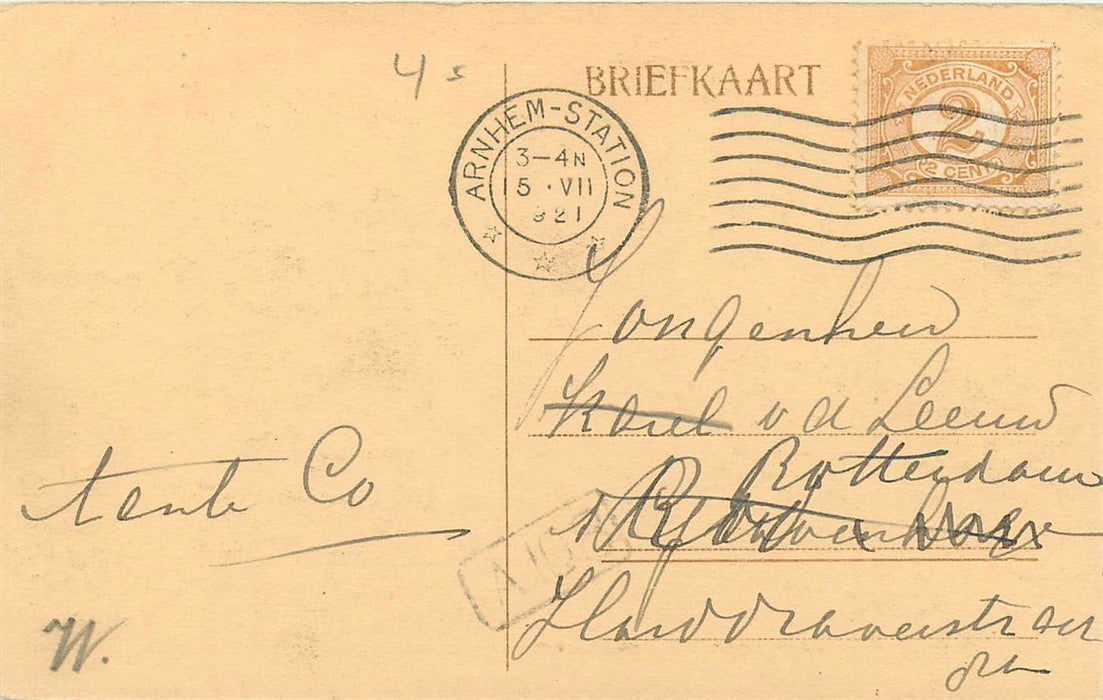 4 s
BRIEFKAART
NEDERLAND
2
2 CENT
ARNHEM-STATION
3-4N
5 · VII
921
Jongenheer
Karel v d Leeuw
Rotterdam
tante Co
Harddraverstraat
W.